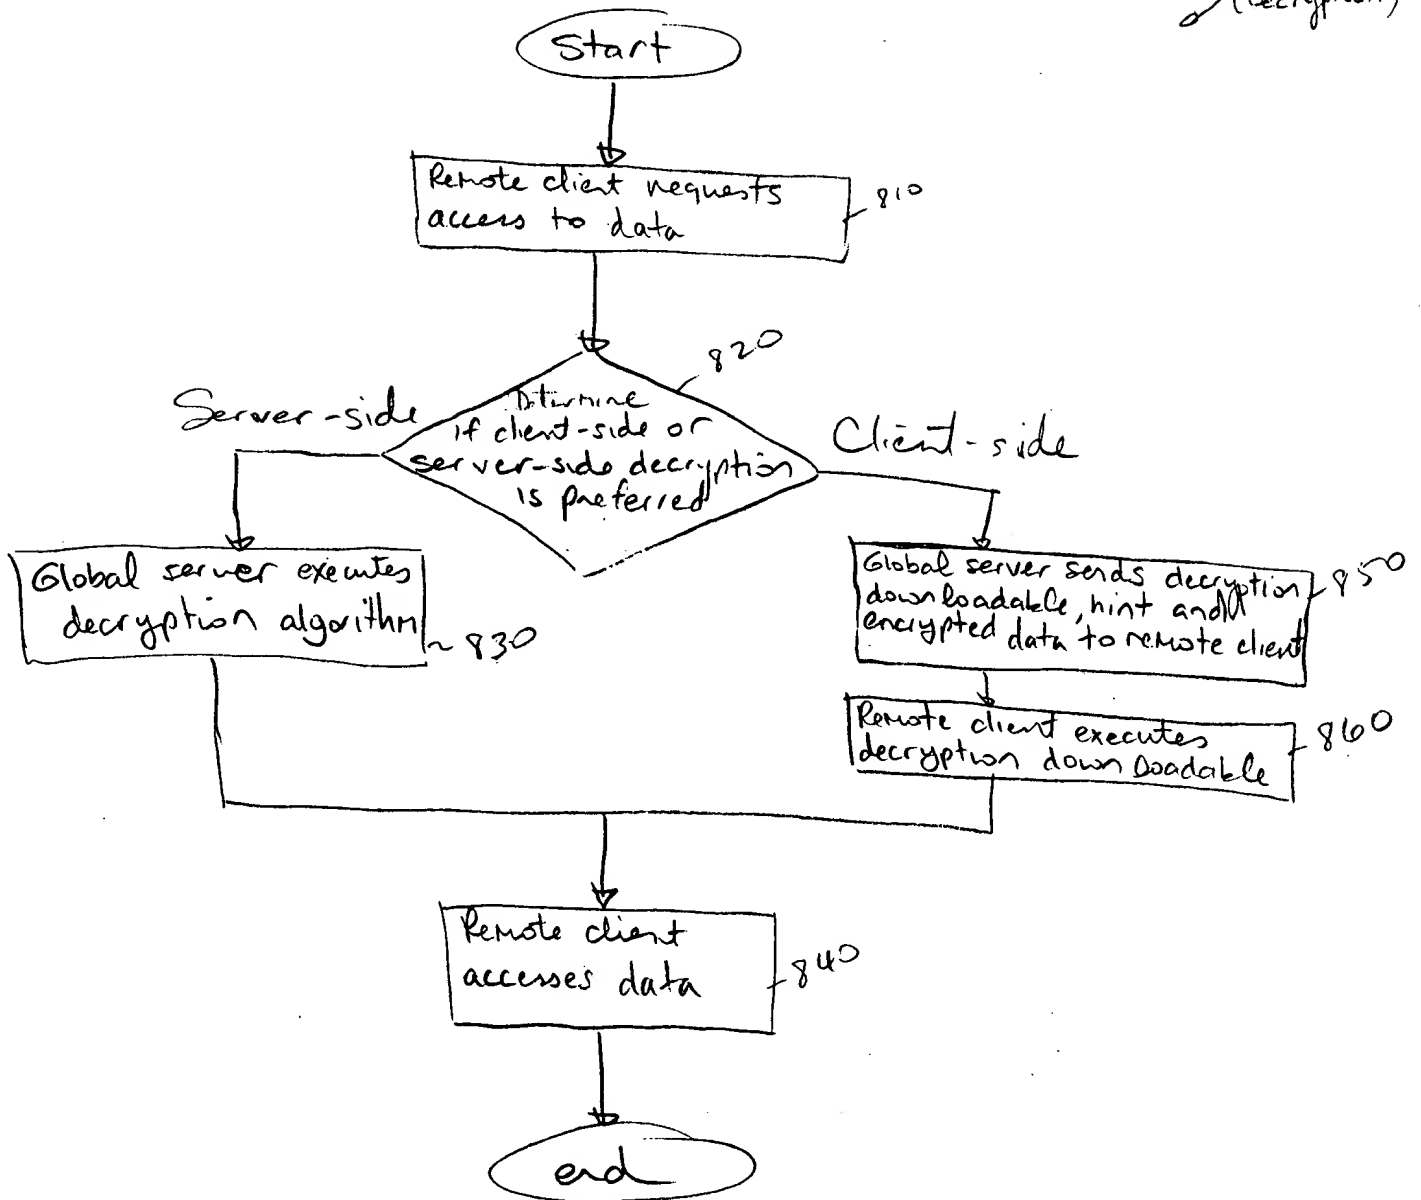 (Decryption)
Start
Remote client requests
access to data
810
820
Determine
if client-side or
server-side decryption
is preferred
Server-side
Client-side
Global server executes
decryption algorithm
830
Global server sends decryption
downloadable, hint and
encrypted data to remote client
850
Remote client executes
decryption downloadable
860
Remote client
accesses data
840
end